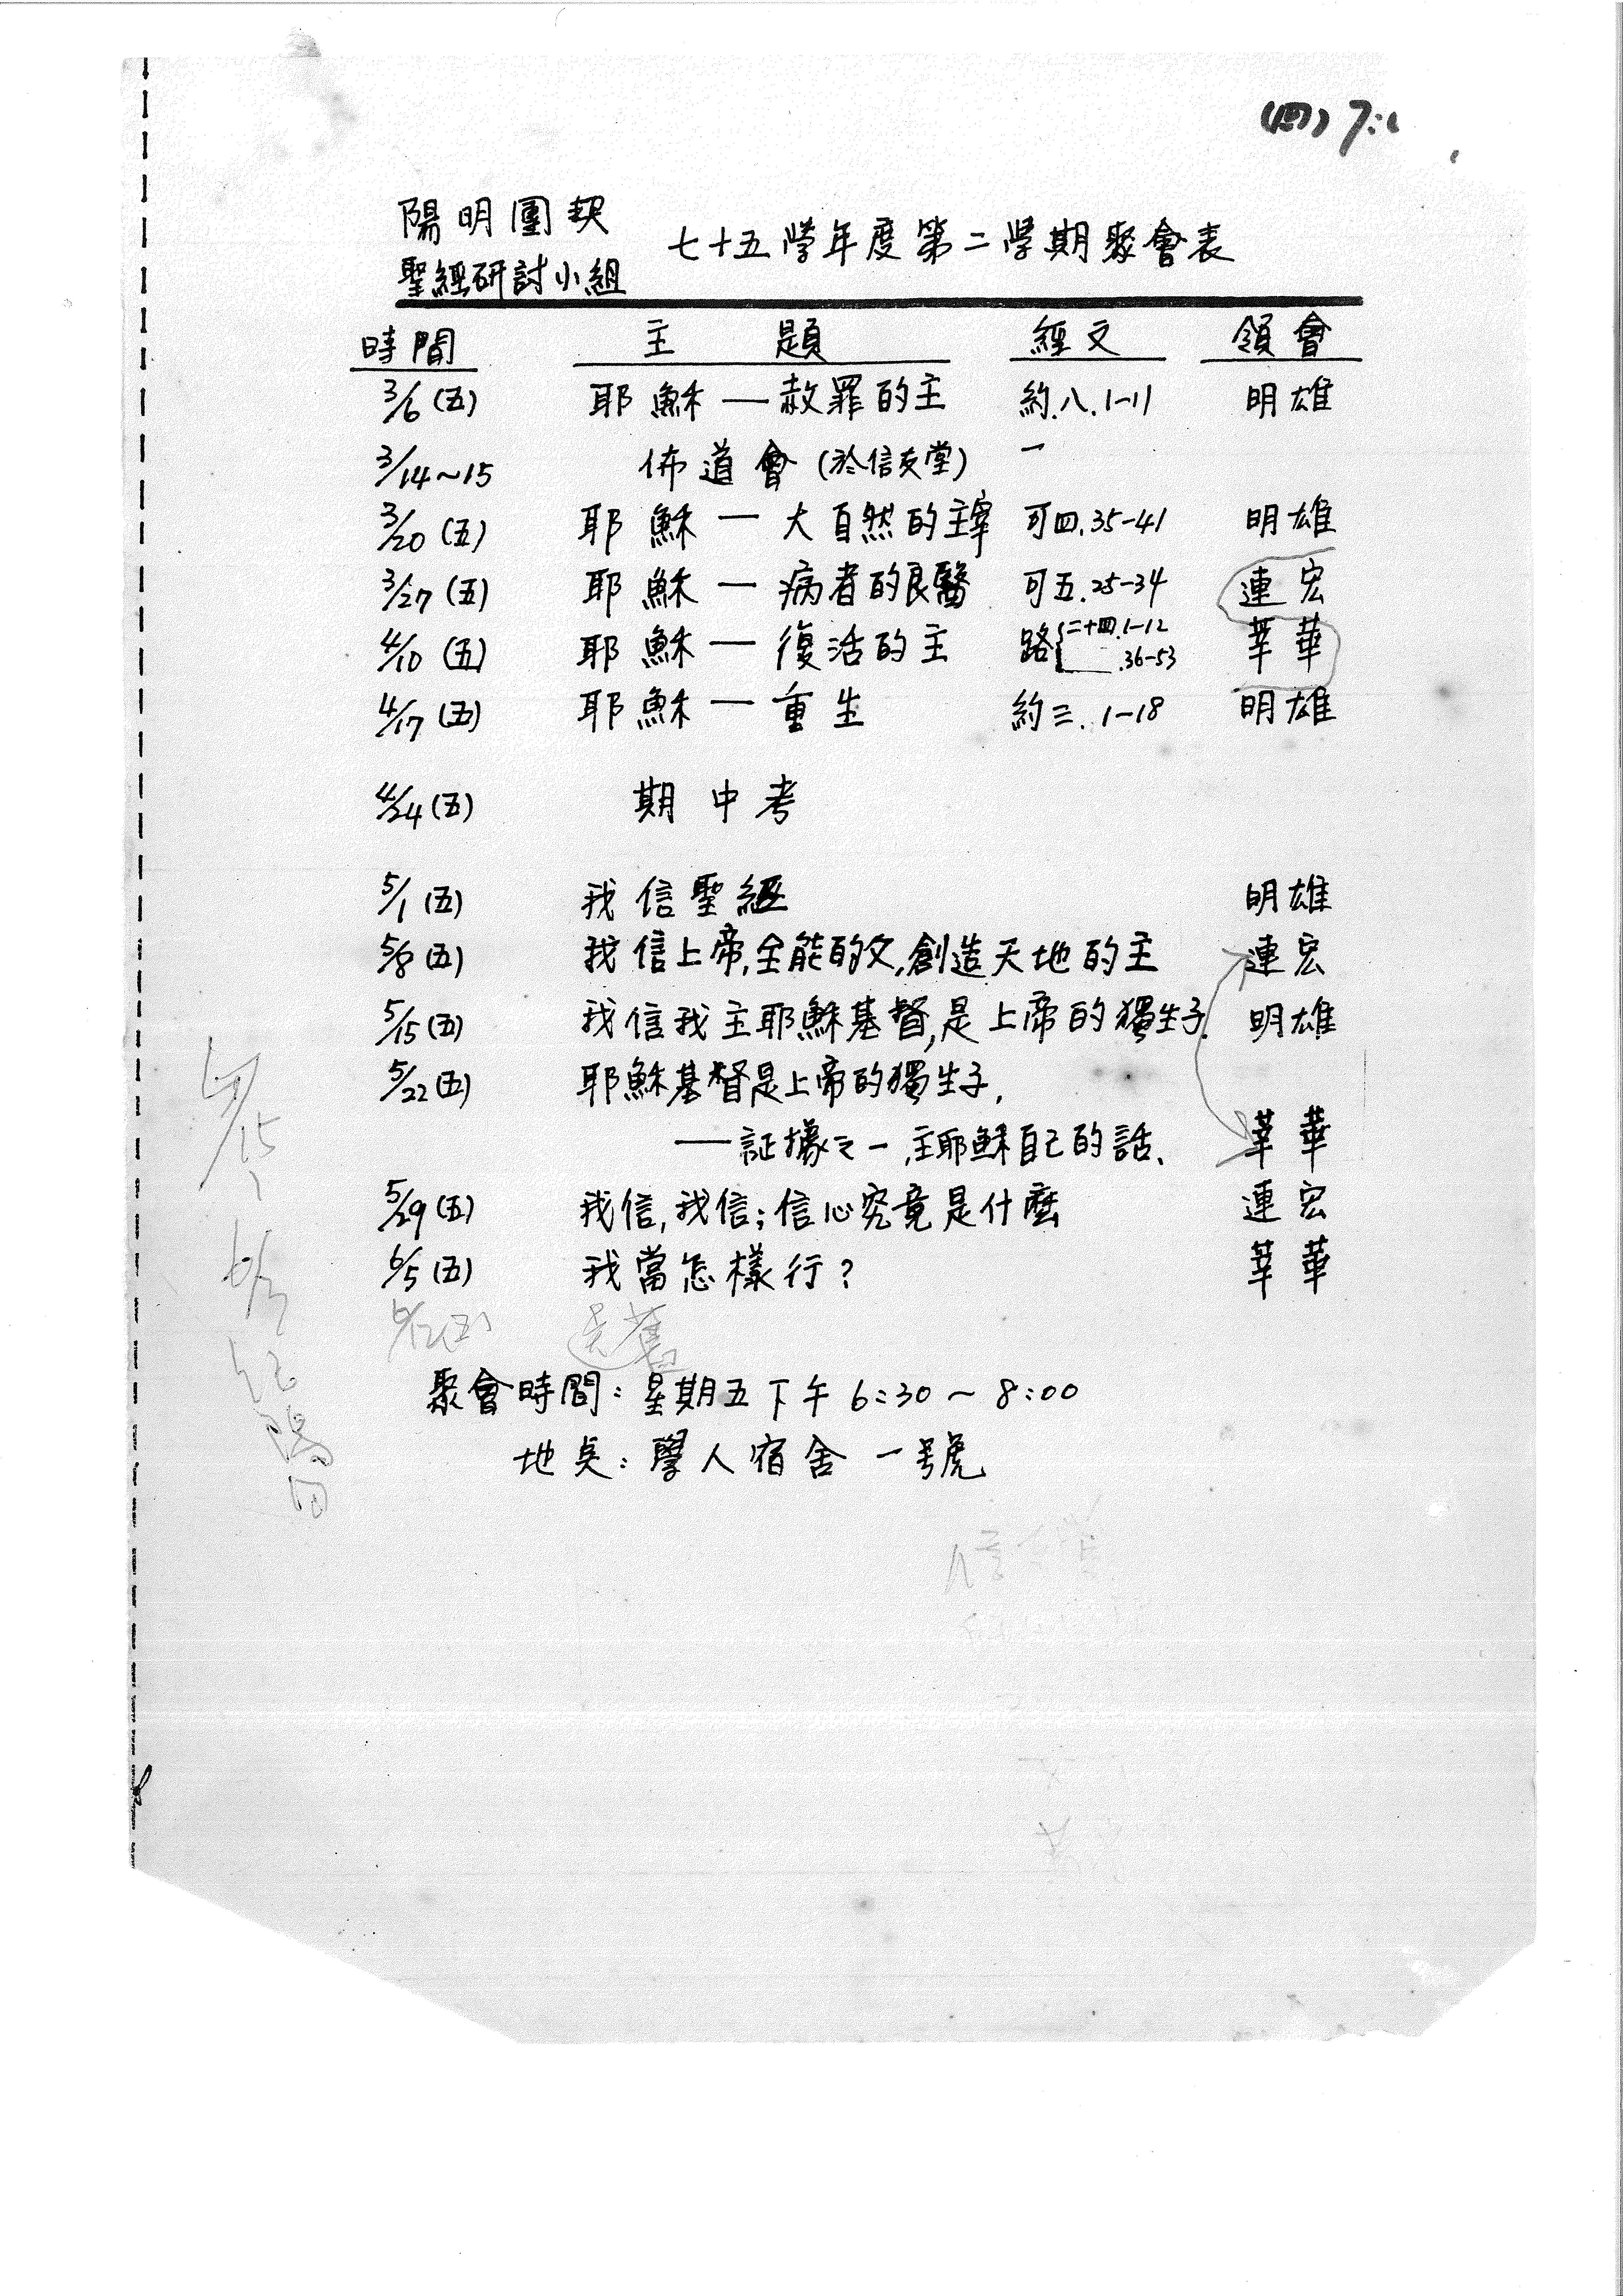 (四) 7:
陽明團契
聖經研討小組
七十五学年度第二学期聚會表
時間 主題 經文 領會
3/6 (五) 耶穌—赦罪的主 約.八.1-11 明雄
3/14~15 佈道會(於信友堂) —
3/20 (五) 耶穌—大自然的主宰 可四.35-41 明雄
3/27 (五) 耶穌—病者的良醫 可五.25-34 連宏
4/10 (五) 耶穌—復活的主 路{二十四.1-12 .36-53 莘華
4/17 (五) 耶穌—重生 約三.1-18 明雄
4/24 (五) 期中考
5/1 (五) 我信聖經 明雄
5/8 (五) 我信上帝,全能的父,創造天地的主 連宏
5/15 (五) 我信我主耶穌基督,是上帝的獨生子. 明雄
5/22 (五) 耶穌基督是上帝的獨生子,
——証據之一,主耶穌自己的話、 莘華
5/29 (五) 我信,我信;信心究竟是什麼 連宏
6/5 (五) 我當怎樣行? 莘華
6/12(五) 送舊
聚會時間:星期五下午 6:30~8:00
地点:學人宿舍一號